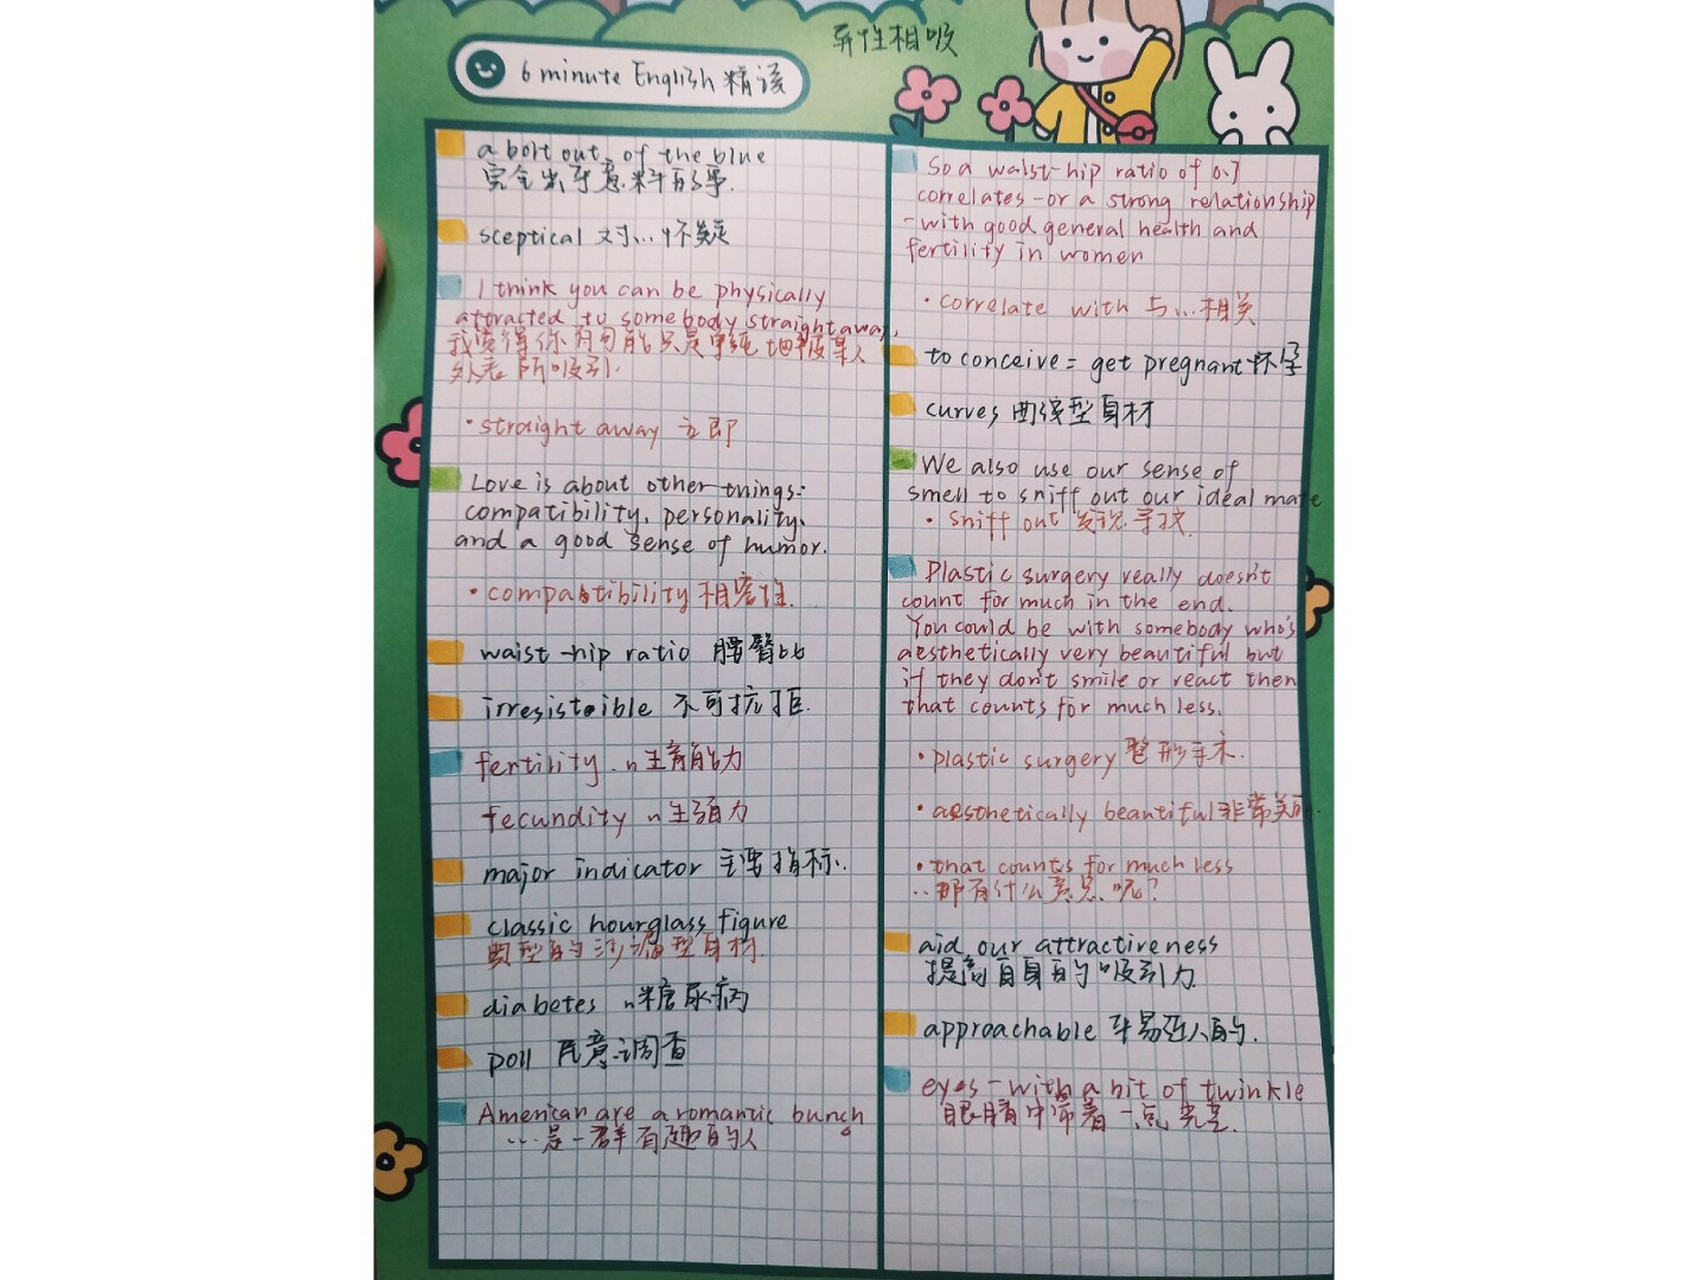 异性相吸
6 minute English 精读
a bolt out of the blue
完全出乎意料的事.
sceptical 对...怀疑
I think you can be physically
attracted to somebody straight away,
我觉得你有可能只是单纯地被某人
外表所吸引.
·straight away 立即
Love is about other things:
compatibility, personality,
and a good sense of humor.
·compatibility 相容性.
waist-hip ratio 腰臀比
irresistible 不可抗拒.
fertility .n 生育能力
fecundity n 生殖力
major indicator 主要指标.
classic hourglass figure
典型的沙漏型身材.
diabetes n 糖尿病
poll 民意调查
American are a romantic bunch
...是一群有趣的人
So a waist-hip ratio of 0.7
correlates-or a strong relationship
-with good general health and
fertility in women
·correlate with 与...相关
to conceive = get pregnant 怀孕
curves 曲线型身材
We also use our sense of
smell to sniff out our ideal mate
·sniff out 发现.寻找.
Plastic surgery really doesn't
count for much in the end.
You could be with somebody who's
aesthetically very beautiful but
if they don't smile or react then
that counts for much less.
·plastic surgery 整形手术.
·aesthetically beautiful 非常美丽.
·that counts for much less
..那有什么意思呢?
aid our attractiveness
提高自身的吸引力
approachable 平易近人的.
eyes-with a bit of twinkle
眼睛中带着一点光芒.